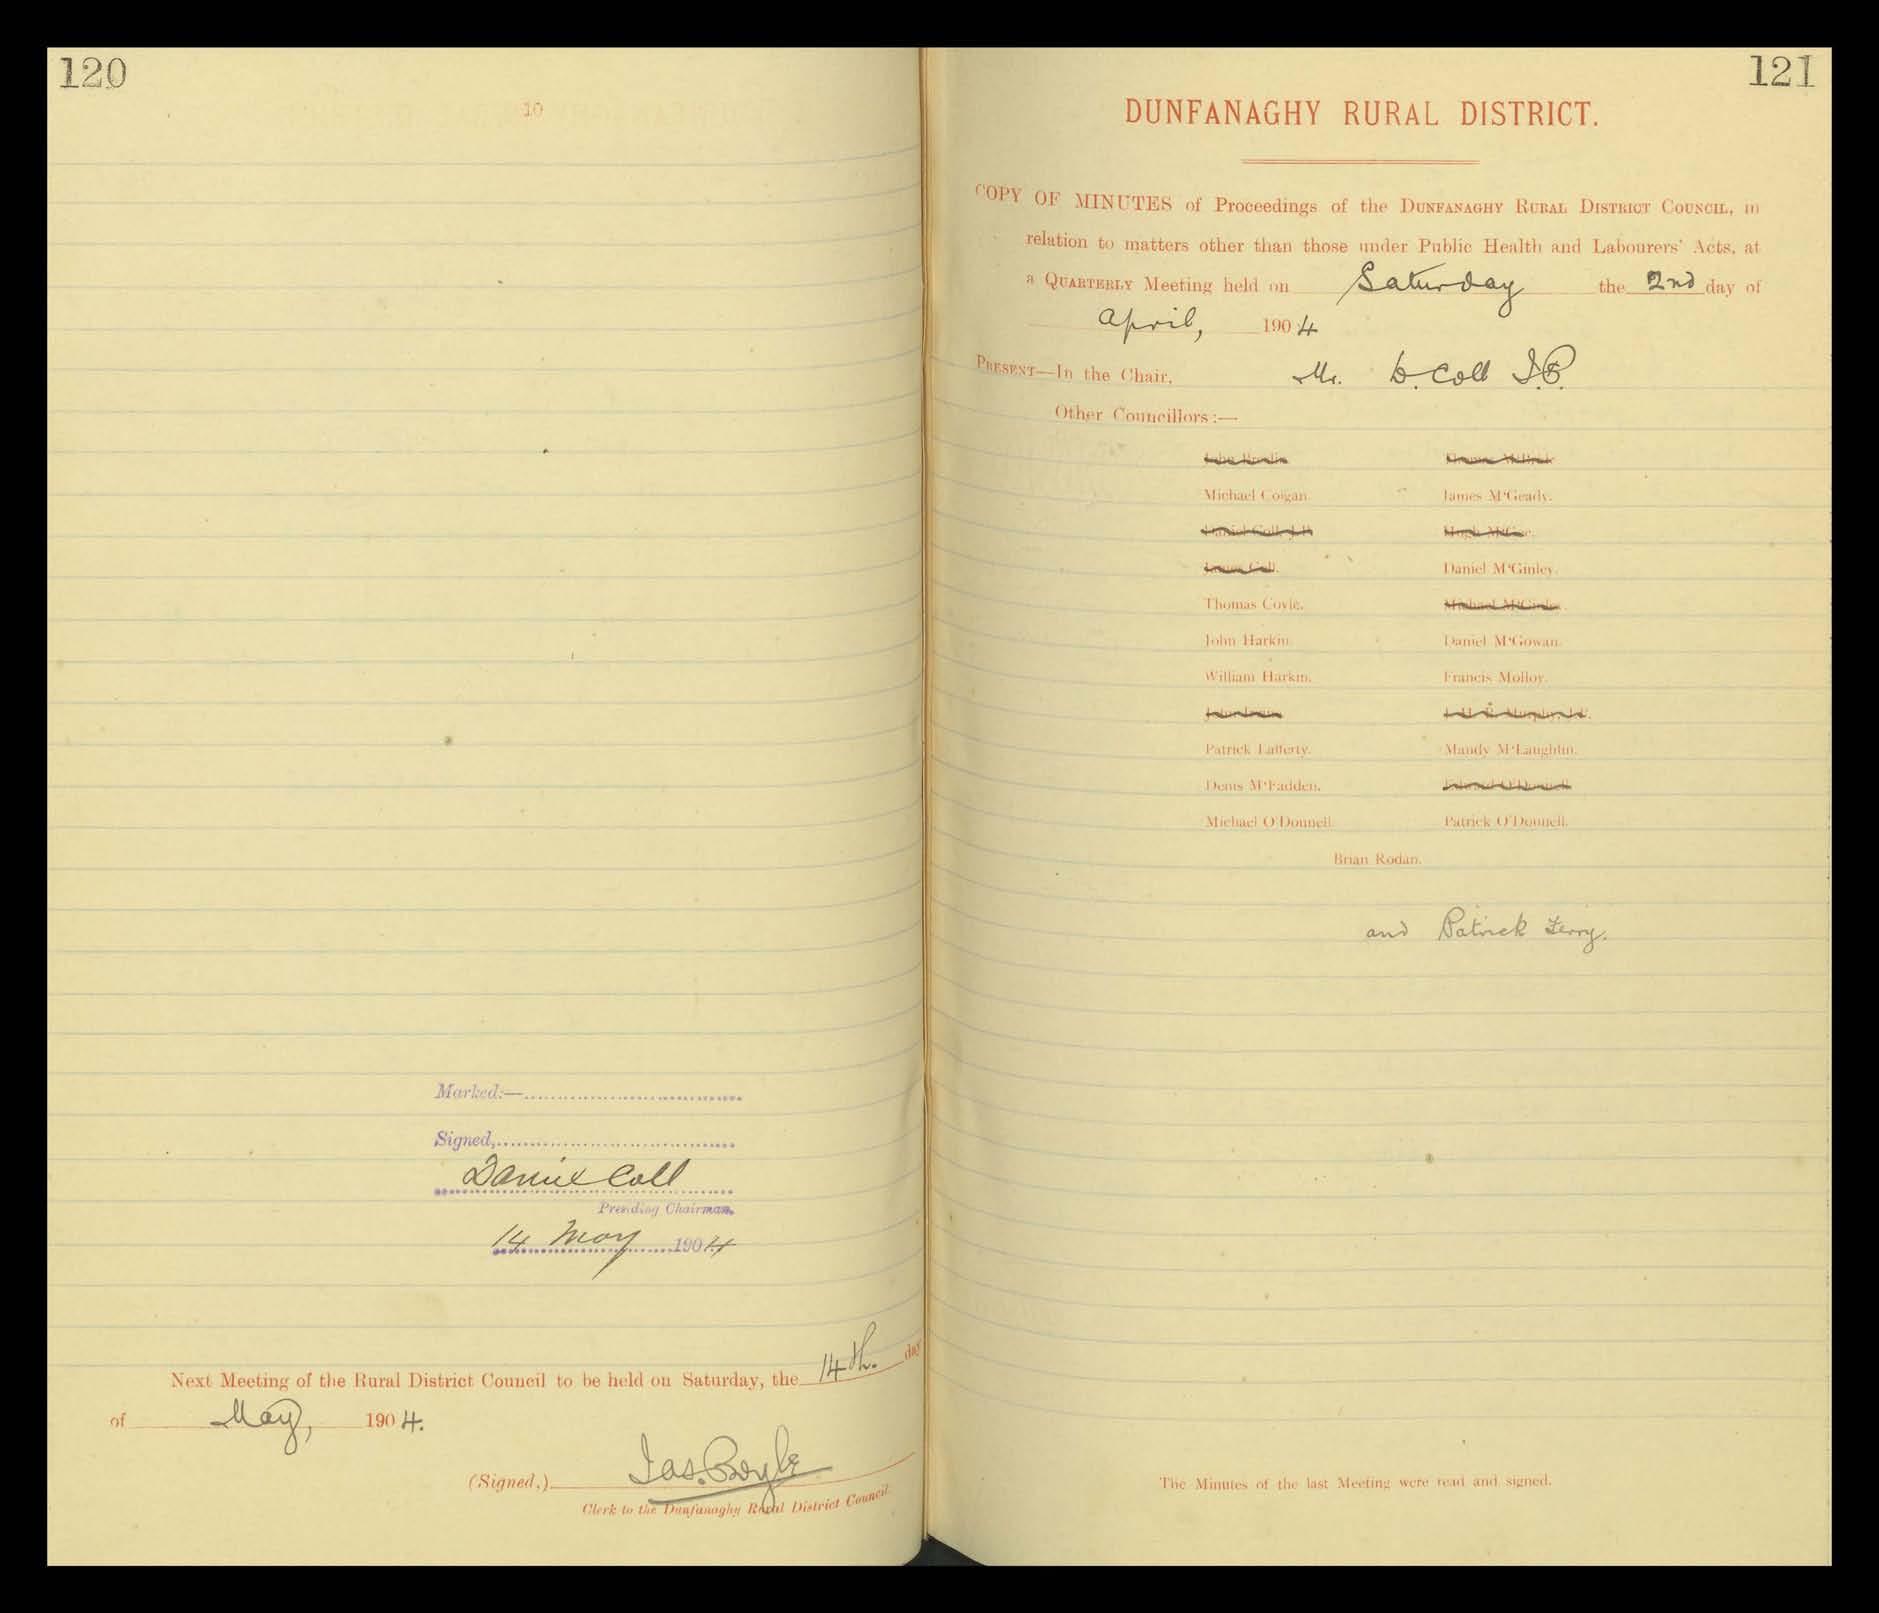 120
10
Marked:—
Signed,
Daniel Coll
Presiding Chairman.
14 May 1904
Next Meeting of the Rural District Council to be held on Saturday, the 14th. day
of May, 1904.
(Signed,) Jas. Boyle
Clerk to the Dunfanaghy Rural District Council.
121
DUNFANAGHY RURAL DISTRICT.
COPY OF MINUTES of Proceedings of the DUNFANAGHY RURAL DISTRICT COUNCIL, in
relation to matters other than those under Public Health and Labourers' Acts, at
a QUARTERLY Meeting held on Saturday the 2nd day of
April, 1904
PRESENT—In the Chair, Mr. D. Coll J.P.
Other Councillors:—
Michael Colgan. James M'Geady.
Daniel Coll, J.P. Hugh M'Gee.
Daniel M'Ginley.
Thomas Coyle. Michael M'Ginley.
John Harkin. Daniel M'Gowan.
William Harkin. Francis Molloy.
Murphy, J.P.
Patrick Lafferty. Mandy M'Laughlin.
Denis M'Fadden. Edward O'Donnell.
Michael O'Donnell. Patrick O'Donnell.
Brian Rodan.
and Patrick Ferry.
The Minutes of the last Meeting were read and signed.